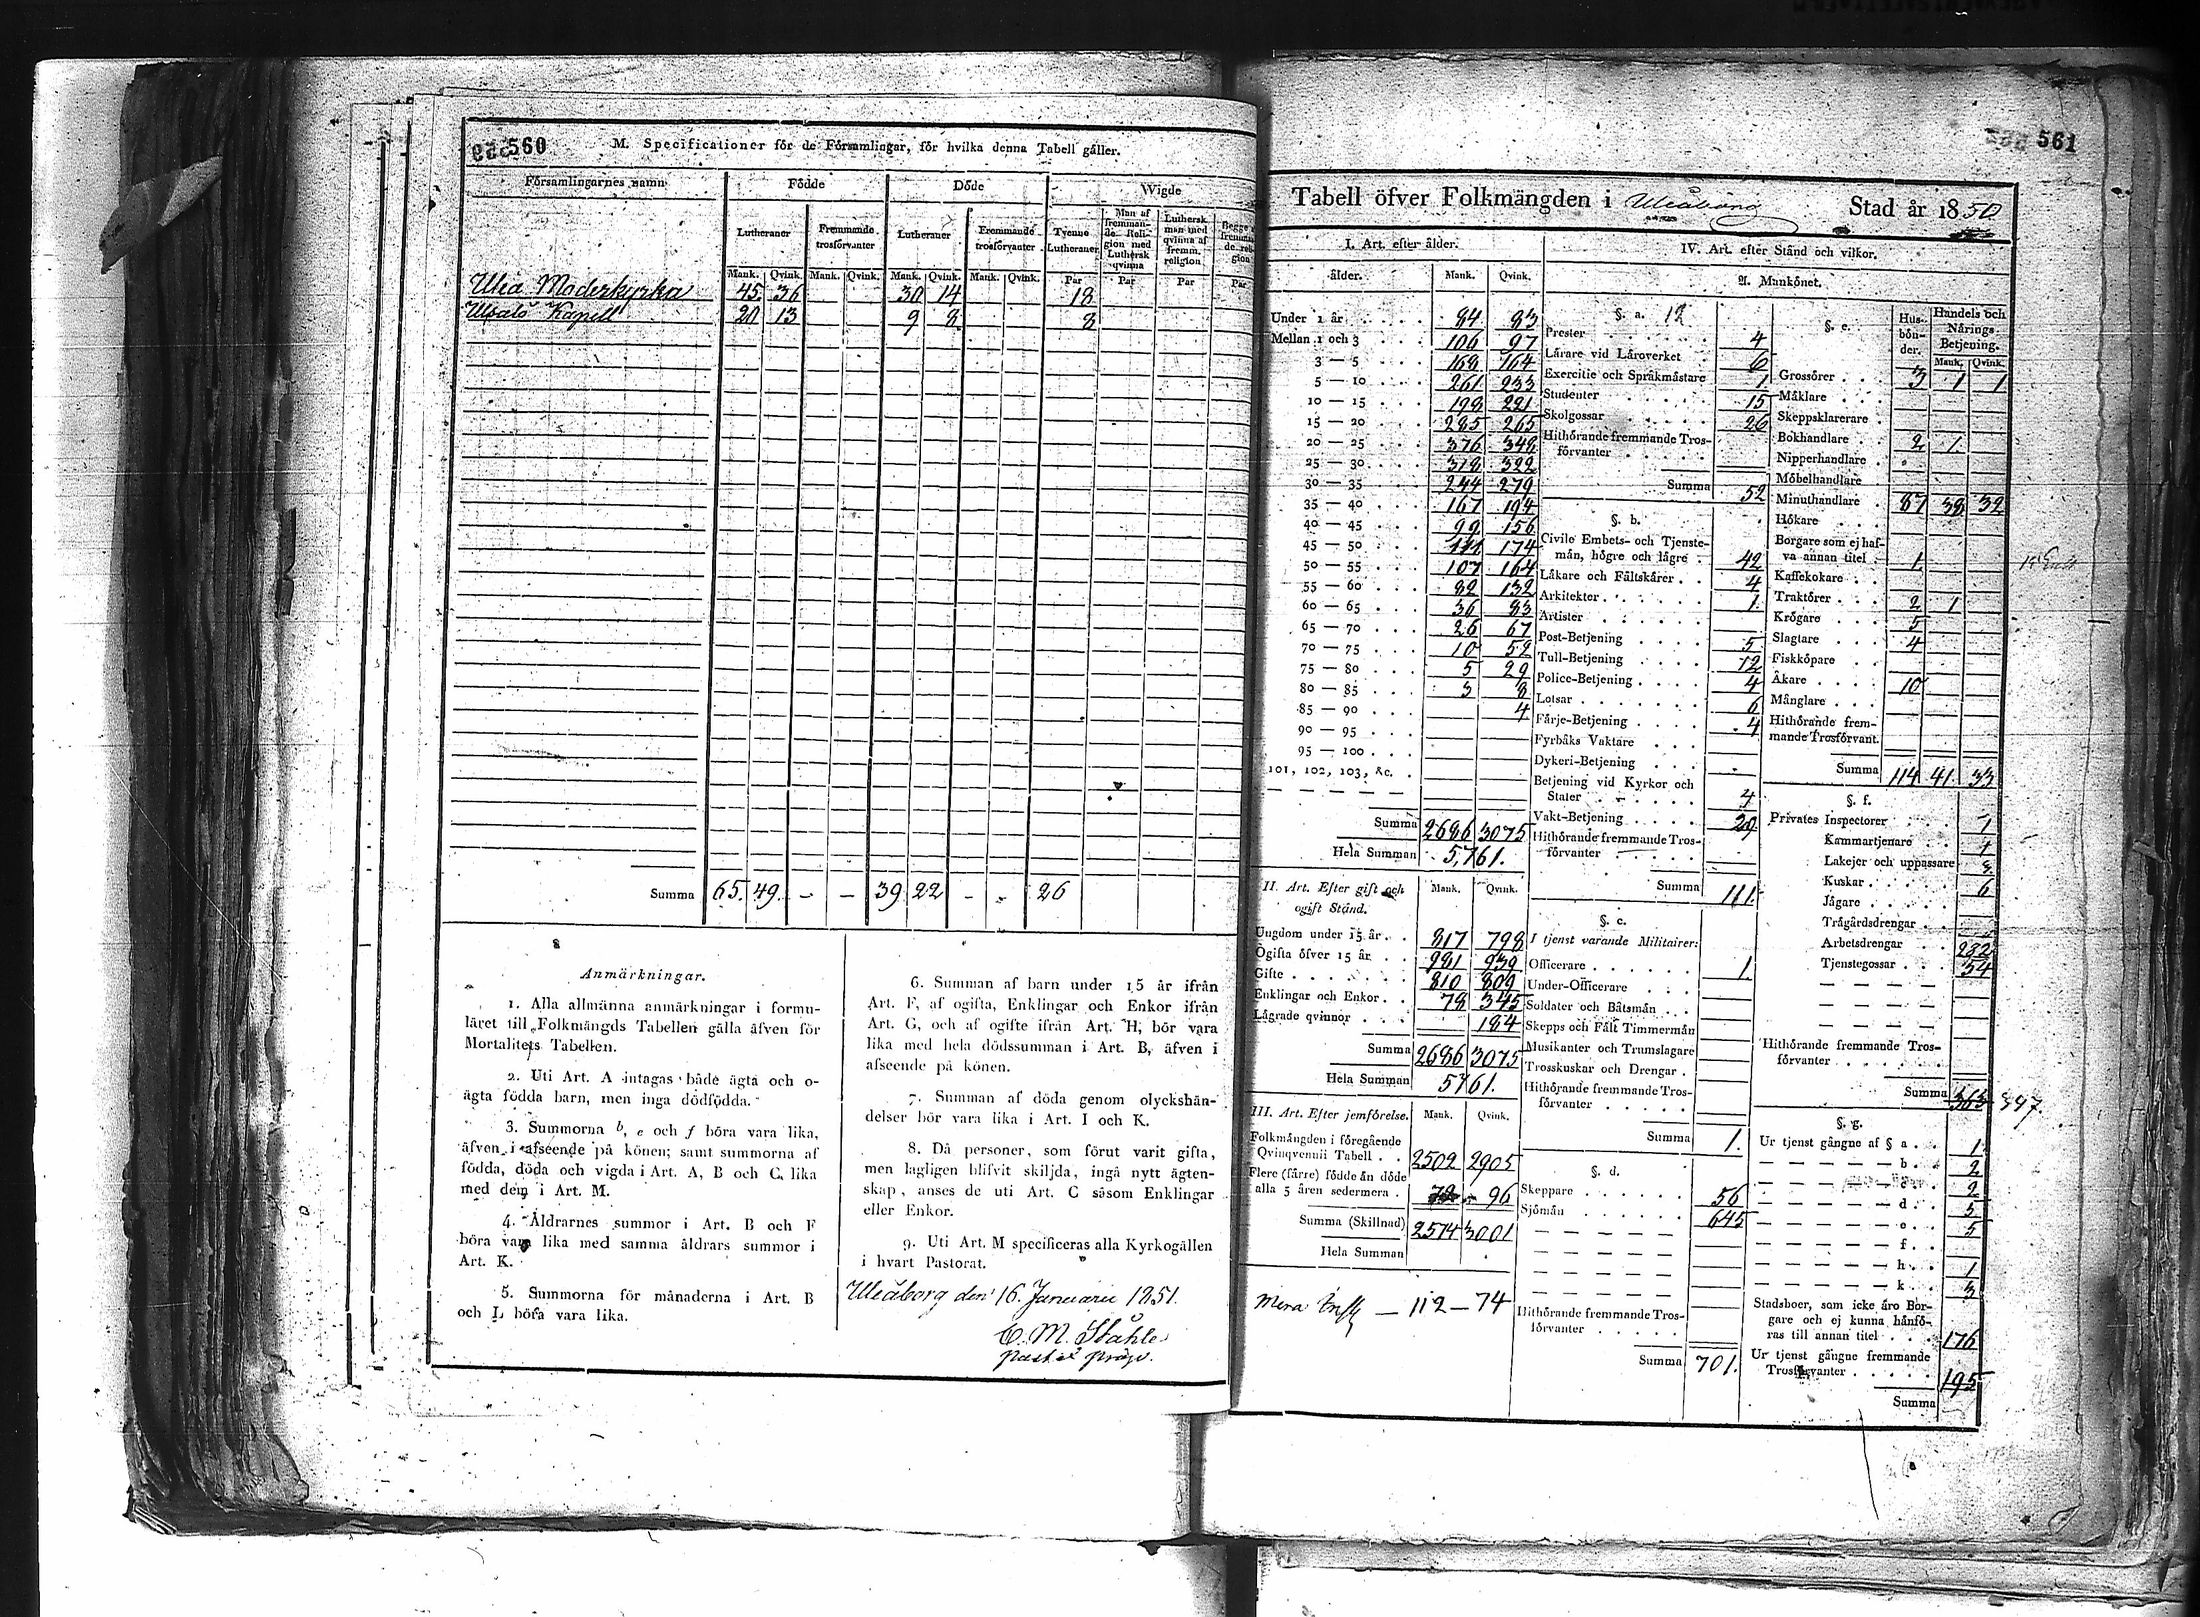 560
M. Specificationer för de Församlingar, för hvilka denna Tabell gäller.
Församlingarnes namn Födde Döde Wigde
Lutheraner Fremmande trosförvanter Lutheraner Fremmande trosförvanter Tvenne Lutheraner Man af fremmande Religion med Luthersk qvinna Luthersk man med qvinna af fremm. religion
Mank. Qvink. Mank. Qvink. Mank. Qvink. Mank. Qvink. Par Par Par Par
Uleå Moderkyrka 45 36 30 14 18
Uleålo Kapell 20 13 9 8 8
Summa 65. 49. - - 39 22 - - 26
Anmärkningar.
1. Alla allmänna anmärkningar i formu-
läret till Folkmängds Tabellen gälla äfven för
Mortalitets Tabellen.
2. Uti Art. A intagas både ägta och o-
ägta födda barn, men inga dödfödda.
3. Summorna b, e och f böra vara lika,
äfven i afseende på könen; samt summorna af
födda, döda och vigda i Art. A, B och C, lika
med dem i Art. M.
4. Åldrarnes summor i Art. B och F
böra vara lika med samma åldrars summor i
Art. K.
5. Summorna för månaderna i Art. B
och L böra vara lika.
6. Summan af barn under 15 år ifrån
Art. F, af ogifta, Enklingar och Enkor ifrån
Art. G, och af ogifte ifrån Art. H, bör vara
lika med hela dödssumman i Art. B, äfven i
afseende på könen.
7. Summan af döda genom olyckshän-
delser bör vara lika i Art. I och K.
8. Då personer, som förut varit gifta,
men lagligen blifvit skiljda, ingå nytt ägten-
skap, anses de uti Art. C såsom Enklingar
eller Enkor.
9. Uti Art. M specificeras alla Kyrkogällen
i hvart Pastorat.
Uleåborg den 16. Januarii 1851.
C. M. Ståhle
561
Tabell öfver Folkmängden i Uleåborg Stad år 1850
I. Art. efter ålder.
ålder. Mank. Qvink.
Under 1 år 84 83
Mellan 1 och 3 106 97
3 — 5 168 164
5 — 10 261 233
10 — 15 198 221
15 — 20 285 265
20 — 25 376 348
25 — 30 318 322
30 — 35 244 279
35 — 40 167 194
40 — 45 99 156
45 — 50 111 174
50 — 55 107 164
55 — 60 82 132
60 — 65 36 83
65 — 70 26 67
70 — 75 10 52
75 — 80 5 29
80 — 85 3 8
85 — 90 4
90 — 95
95 — 100
101, 102, 103, &c.
Summa 2686 3075
Hela Summan 5,761.
II. Art. Efter gift och ogift Stånd. Mank. Qvink.
Ungdom under 15 år 817 798
Ogifta öfver 15 år 981 939
Gifte 810 809
Enklingar och Enkor 78 345
Lägrade qvinnor 184
Summa 2686 3075
Hela Summan 5761.
III. Art. Efter jemförelse. Mank. Qvink.
Folkmängden i föregående
Qvinqvennii Tabell 2502 2905
Flere (färre) födde än döde
alla 5 åren sedermera 72 96
Summa (Skillnad) 2574 3001
Hela Summan
Mera — 112 — 74
IV. Art. efter Stånd och vilkor.
A. Mankönet.
§. a. 12
Prester 4
Lärare vid Läroverket 6
Exercitie och Språkmästare 1
Studenter 15
Skolgossar 26
Hithörande fremmande Tros-
förvanter
Summa 52
§. b.
Civile Embets- och Tjenste-
män, högre och lägre 42
Läkare och Fältskärer 4
Arkitekter 1
Artister
Post-Betjening 5
Tull-Betjening 12
Police-Betjening 4
Lotsar 6
Färje-Betjening 4
Fyrbåks Vaktare
Dykeri-Betjening
Betjening vid Kyrkor och
Stater 4
Vakt-Betjening 29
Hithörande fremmande Tros-
förvanter
Summa 111.
§. c.
I tjenst varande Militairer:
Officerare 1.
Under-Officerare
Soldater och Båtsmän
Skepps och Fält Timmermän
Musikanter och Trumslagare
Trosskuskar och Drengar
Hithörande fremmande Tros-
förvanter
Summa 1.
§. d.
Skeppare 56
Sjömän 645
Hithörande fremmande Tros-
förvanter
Summa 701.
§. e. Husbönder. Handels och Närings Betjening.
Mank. Qvink.
Grossörer 3 1 1
Mäklare
Skeppsklarerare
Bokhandlare 2 1.
Nipperhandlare
Möbelhandlare
Minuthandlare 87 38 32
Hökare
Borgare som ej haf-
va annan titel 1.
Kaffekokare
Traktörer 2 1
Krögare 5
Slagtare 4
Fiskköpare
Åkare 10
Månglare
Hithörande frem-
mande Trosförvant.
Summa 114 41. 33
§. f.
Privates Inspectorer 1
Kammartjenare 1
Lakejer och uppassare 3
Kuskar 6
Jägare
Trägårdsdrengar
Arbetsdrengar 282
Tjenstegossar 54
Hithörande fremmande Tros-
förvanter
Summa 363 347.
§. g.
Ur tjenst gångne af § a 1.
— b. 2
— c. 2
— d. 5
— e. 5
— f.
— h. 1
— k. 3
Stadsboer, som icke äro Bor-
gare och ej kunna hänfö-
ras till annan titel 176
Ur tjenst gångne fremmande
Trosförvanter
195
Summa